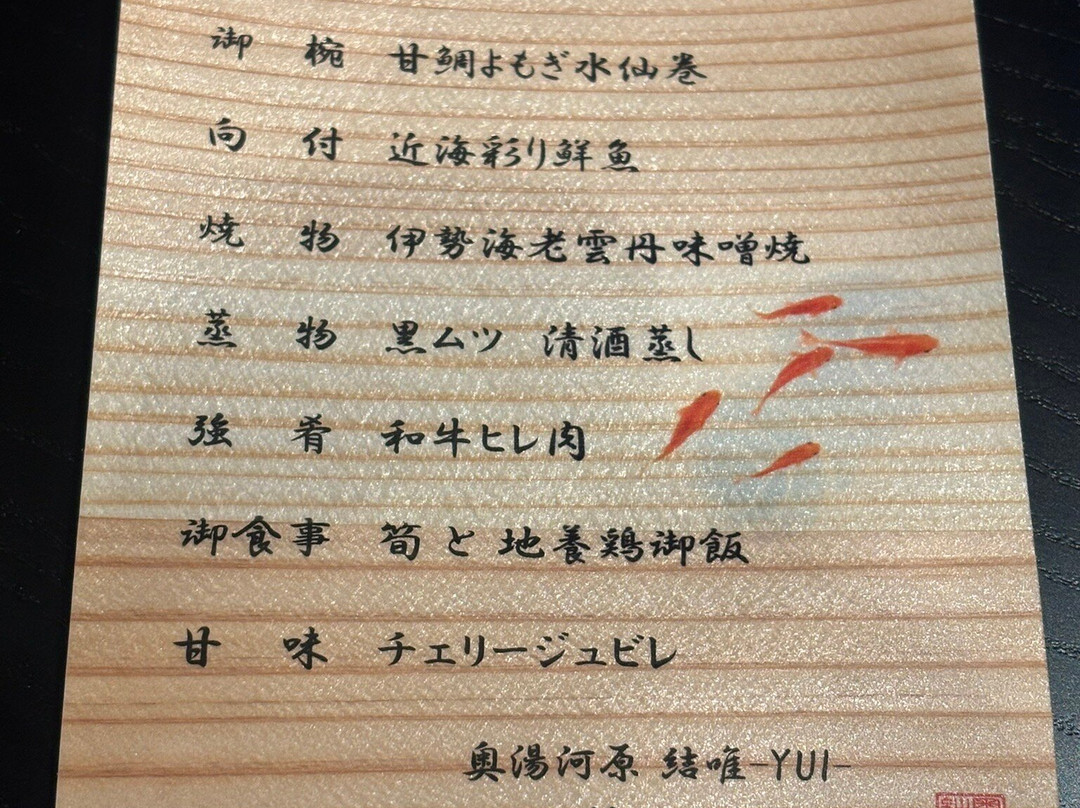 御椀 甘鯛よもぎ水仙巻
向付 近海彩り鮮魚
焼物 伊勢海老雲丹味噌焼
蒸物 黒ムツ 清酒蒸し
強肴 和牛ヒレ肉
御食事 筍と地養鶏御飯
甘味 チェリージュビレ
奥湯河原 結唯-YUI-